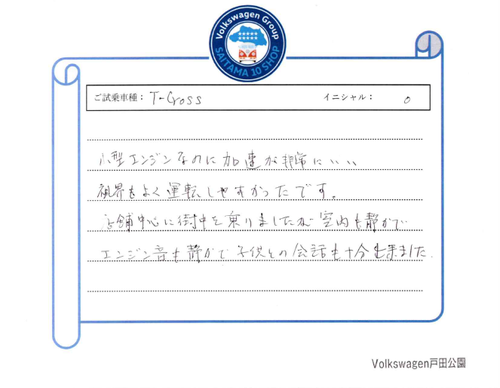 Volkswagen Group
SAITAMA 10 SHOP
ご試乗車種： T-Cross イニシャル： O
小型エンジンなのに加速が非常にいい
視界もよく運転しやすかったです。
店舗中心に街中を乗りましたが室内も静かで
エンジン音も静かで子供との会話も十分出来ました.
Volkswagen戸田公園